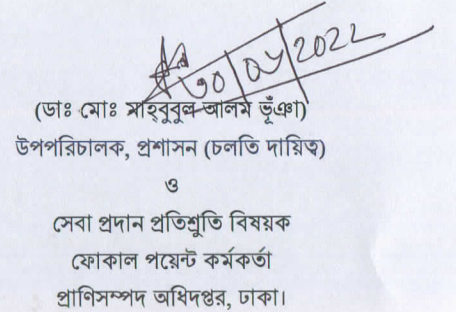 ৩০/০৮/2022
(ডাঃ মোঃ মাহবুবুল আলম ভূঁঞা)
উপপরিচালক, প্রশাসন (চলতি দায়িত্ব)
ও
সেবা প্রদান প্রতিশ্রুতি বিষয়ক
ফোকাল পয়েন্ট কর্মকর্তা
প্রাণিসম্পদ অধিদপ্তর, ঢাকা।